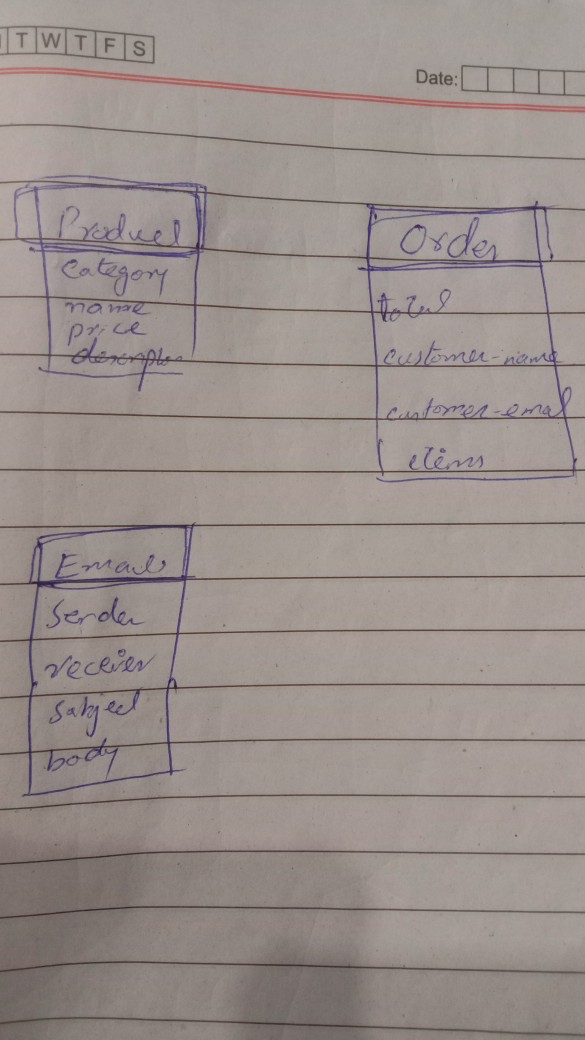 T W T F S
Date:
Product
category
name
price
Order
total
customer-name
customer-email
items
Emails
Sender
receiver
subject
body